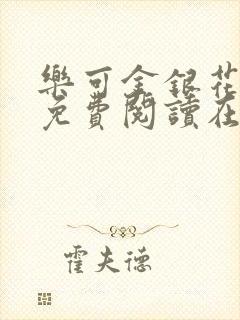 樂可金銀花
免費閱讀在
霍夫德